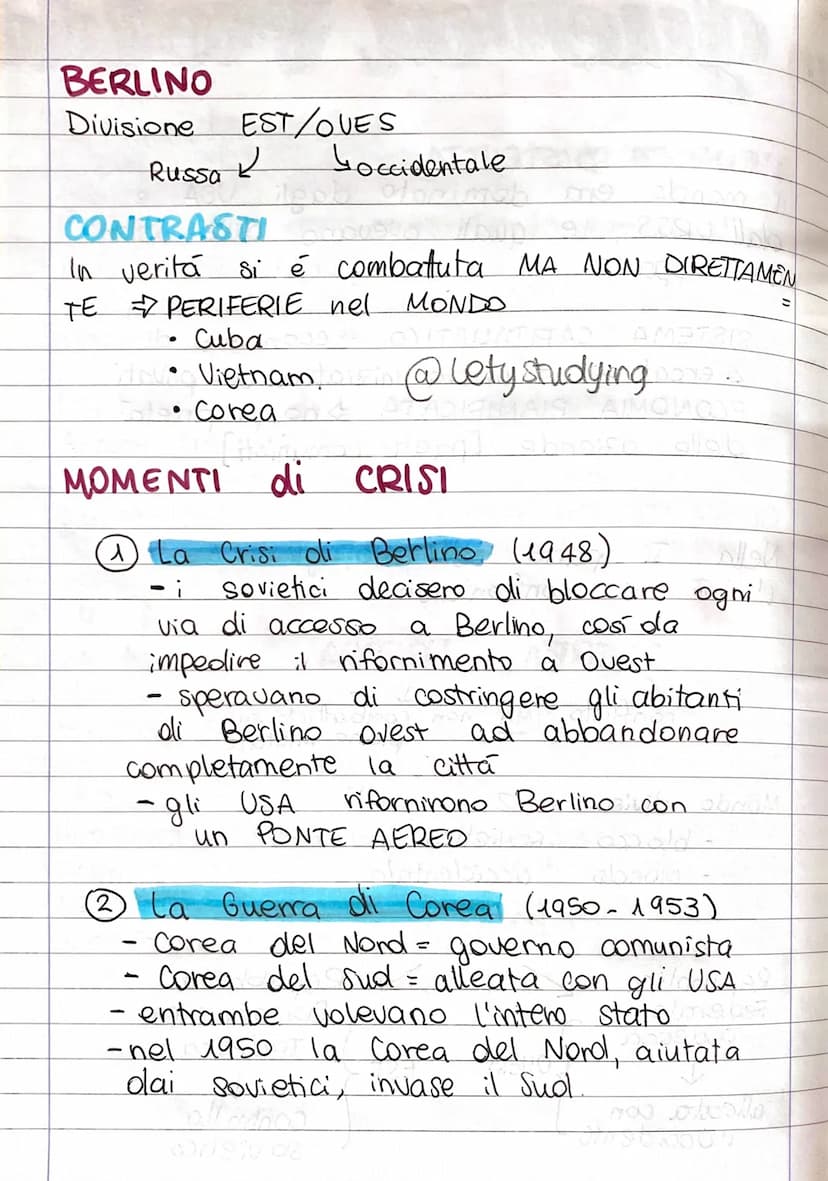 BERLINO
Divisione EST/OVES
Russa occidentale
CONTRASTI
In veritá si é combattuta MA NON DIRETTAMEN
TE => PERIFERIE nel MONDO
• Cuba
• Vietnam.
@letystudying
• Corea
MOMENTI di CRISI
1 La Crisi di Berlino (1948)
- i sovietici decisero di bloccare ogni
via di accesso a Berlino, così da
impedire il rifornimento a Ovest
- speravano di costringere gli abitanti
di Berlino ovest ad abbandonare
completamente la cittá
- gli USA rifornirono Berlino con
un PONTE AEREO
2 La Guerra di Corea (1950-1953)
- Corea del Nord = governo comunista
- Corea del Sud = alleata con gli USA
- entrambe volevano l'intero stato
- nel 1950 la Corea del Nord, aiutata
dai sovietici, invase il Sud.